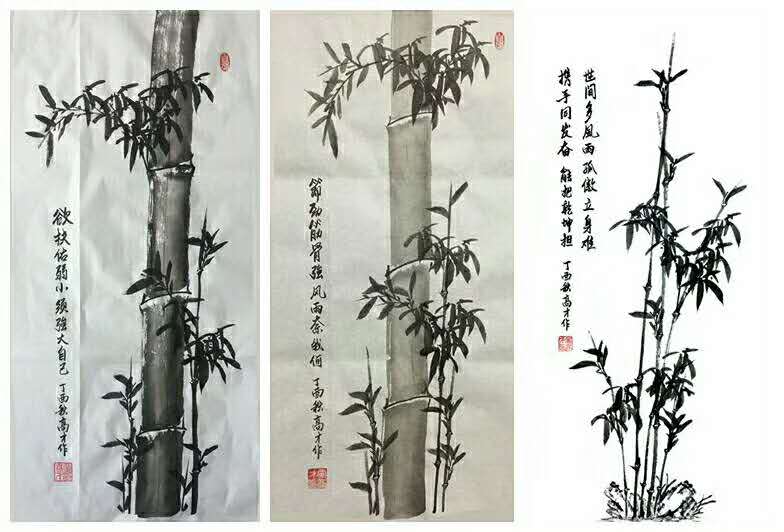 欲扶佑弱小须強大自己 丁酉秋高才作
節劲筋骨强风雨奈我何 丁酉秋高才作
世间多風雨孤傲立身难
携手同发奋 能把乾坤担 丁酉秋高才作